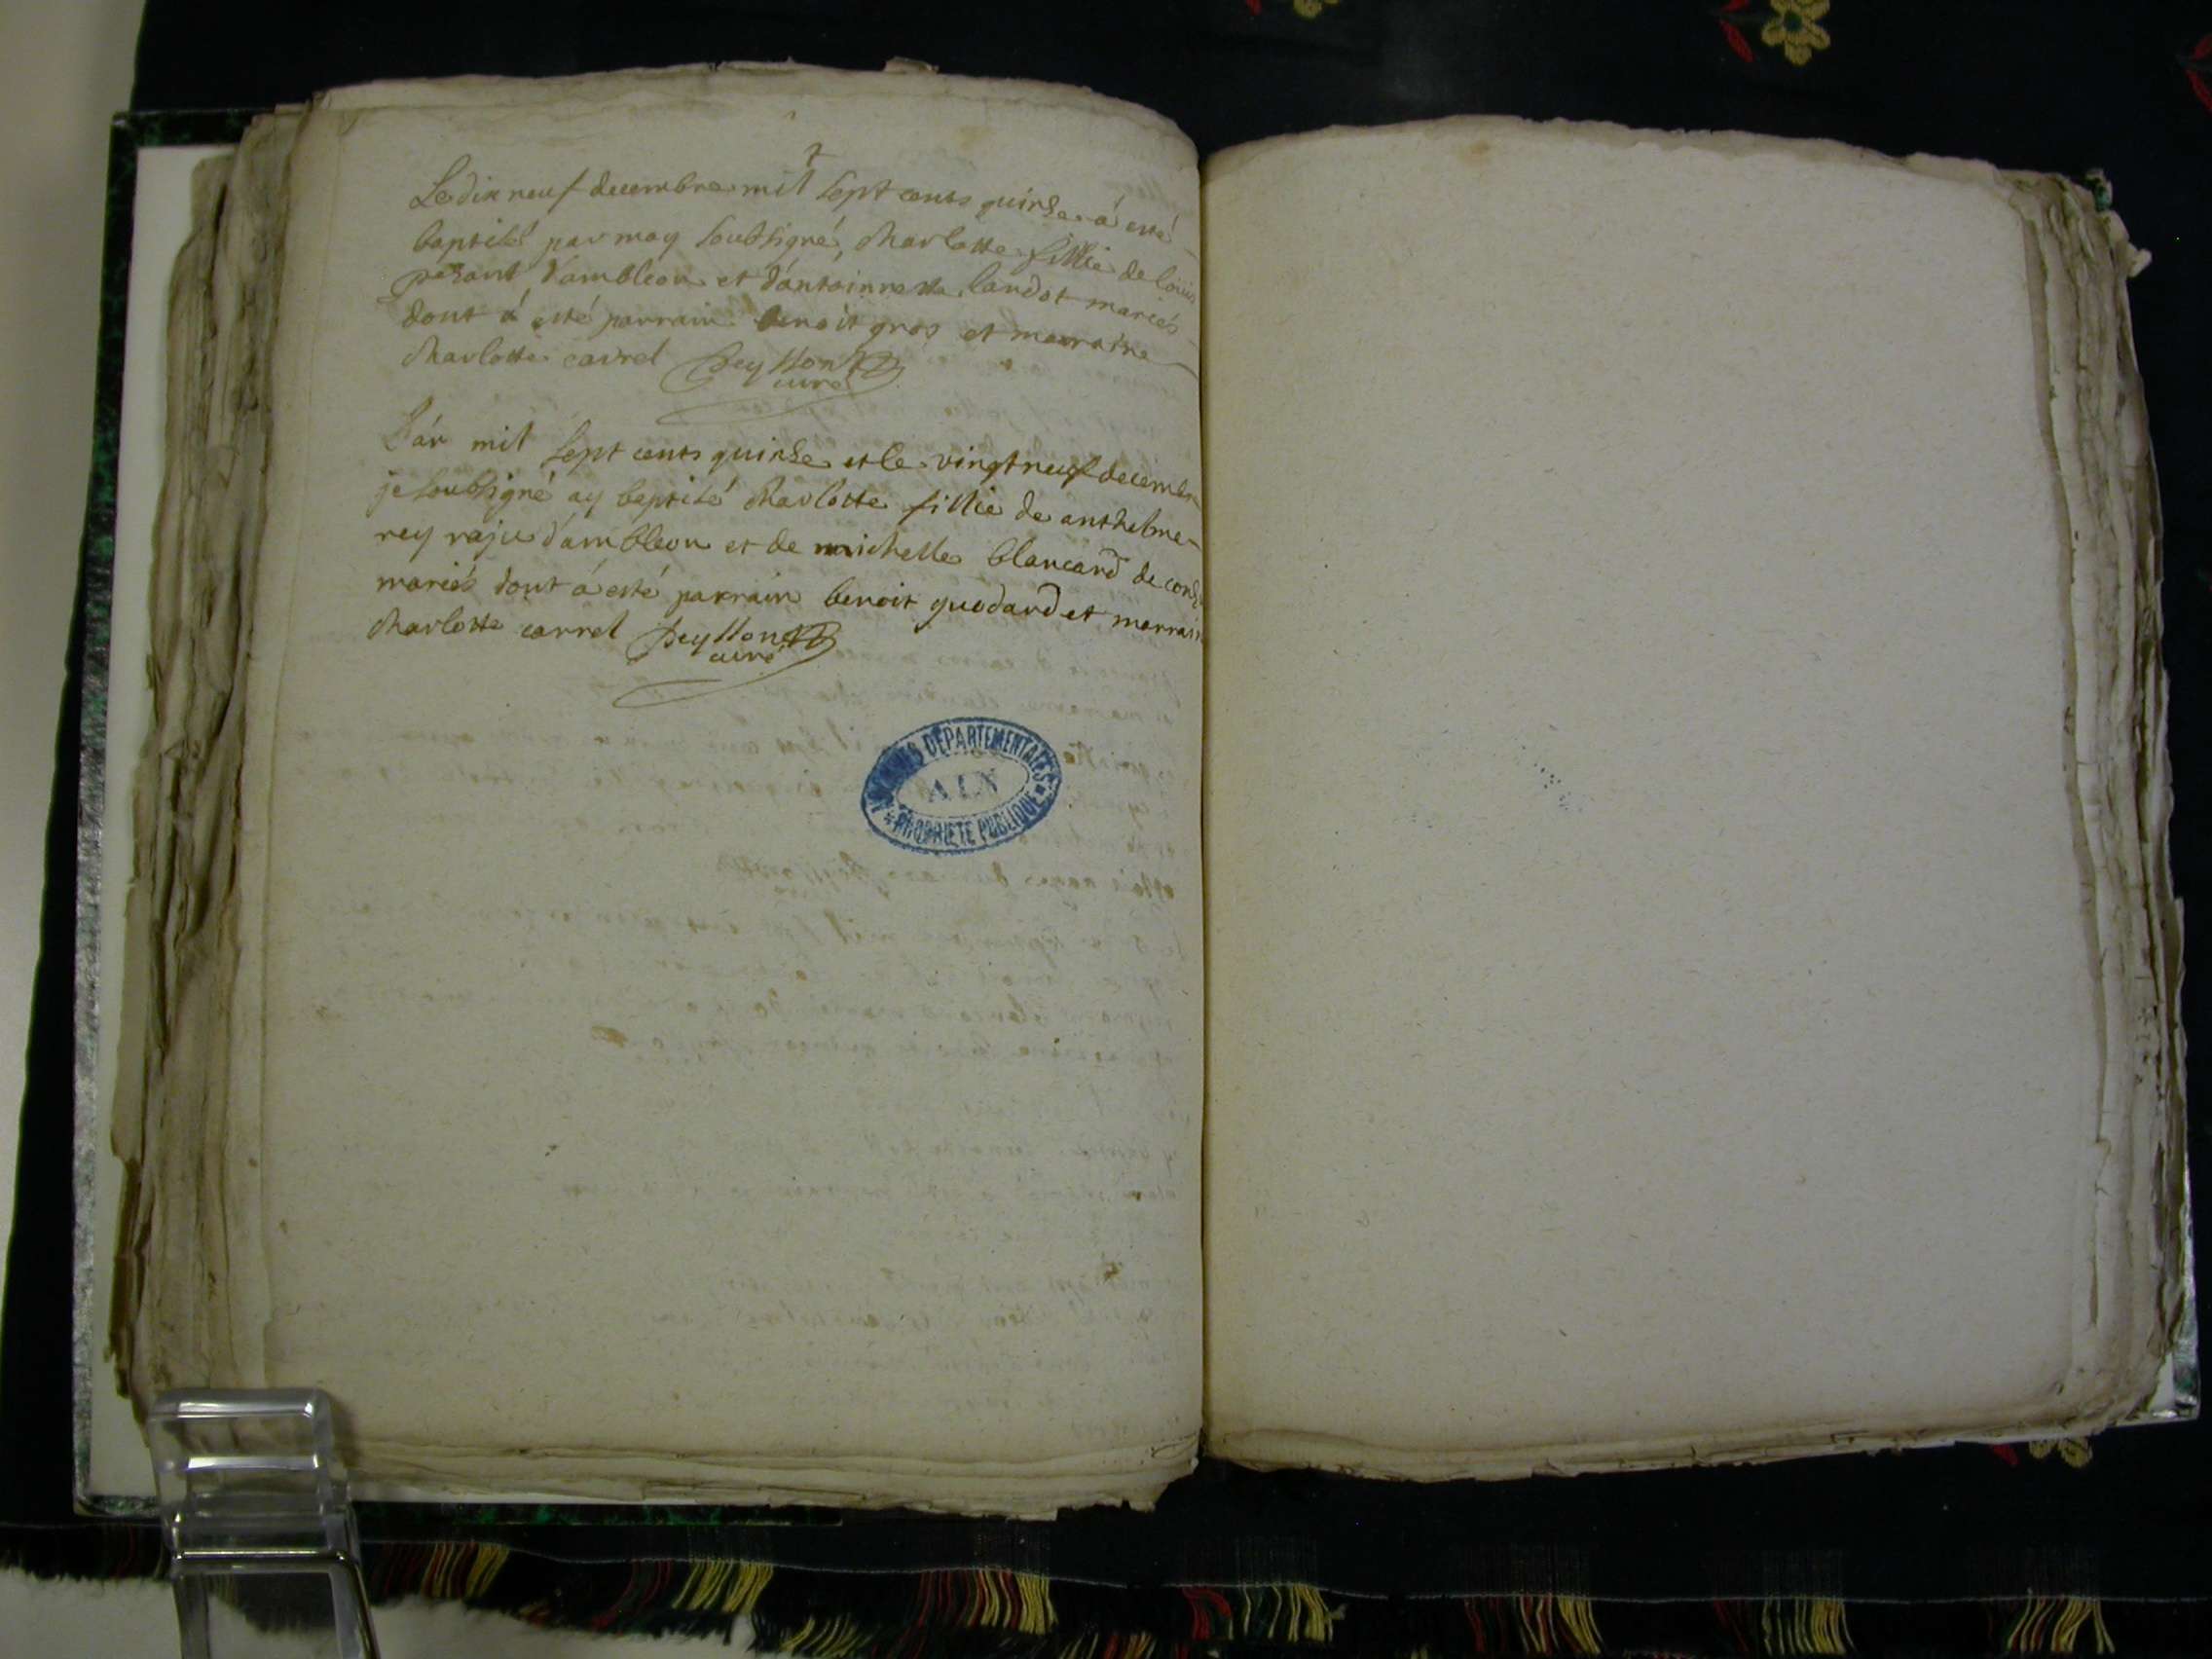 Le dix neuf decembre mil sept cents quinse a esté
baptisé par moy soubsigné, charlotte fillie de louis
pesant d'ambleon et d'antoinnette landot mariés
dont á esté parrain benoit gros et marraine
charlotte carrel
curé
L'án mil sept cents quinse et le vingt neuf decembre
je soubsigné ay baptisé charlotte fillie de anthelme
rey raju d'ambleon et de michelle blancard de
mariés dont á esté parrain benoit guodard et marrain
charlotte carrel
curé
ARCHIVES DEPARTEMENTALES
AIN
PROPRIETE PUBLIQUE